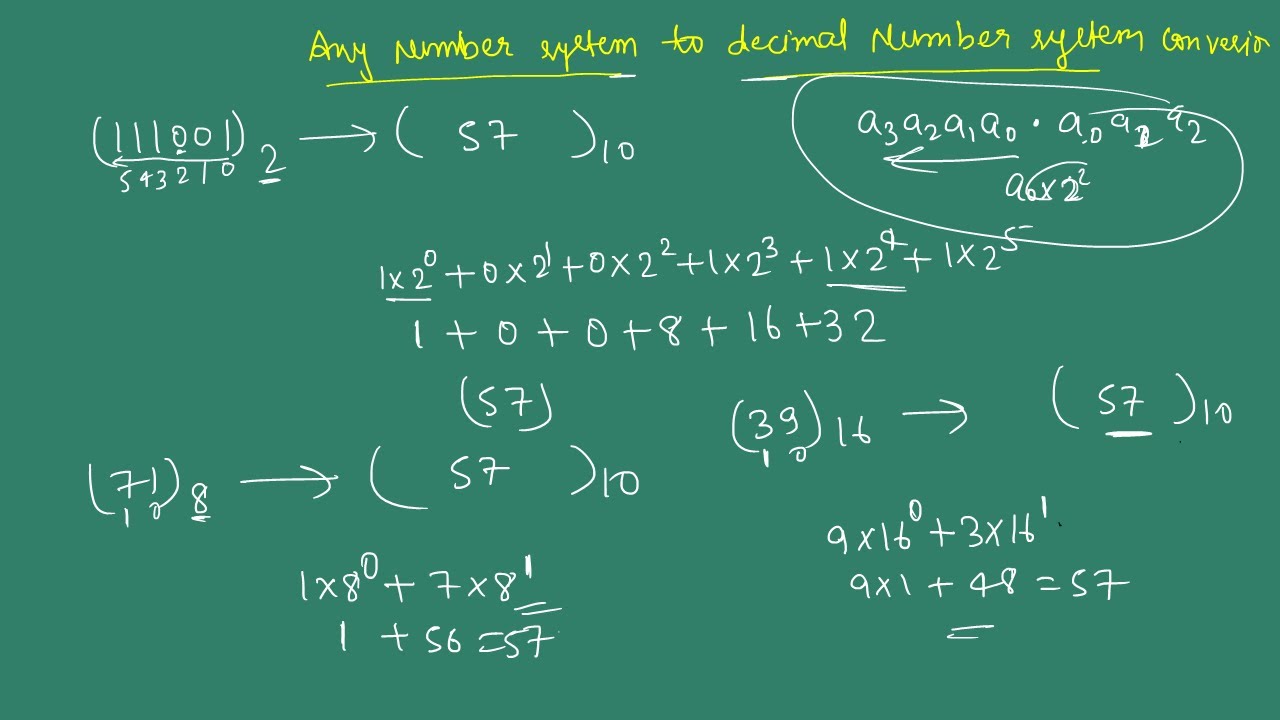 Any Number system to decimal Number system conversio
(111001)₂ → ( 57 )₁₀
5 4 3 2 1 0
a₃a₂a₁a₀ . a₀ a₁ a₂
a₀×2²
1×2⁰+0×2¹+0×2²+1×2³+1×2⁴+1×2⁵
1 + 0 + 0 + 8 + 16 + 32
(57)
(39)₁₆ → ( 57 )₁₀
1 0
(71)₈ → ( 57 )₁₀
1 0
9×16⁰+3×16¹
9×1 + 48 = 57
1×8⁰+ 7×8¹
1 + 56 = 57